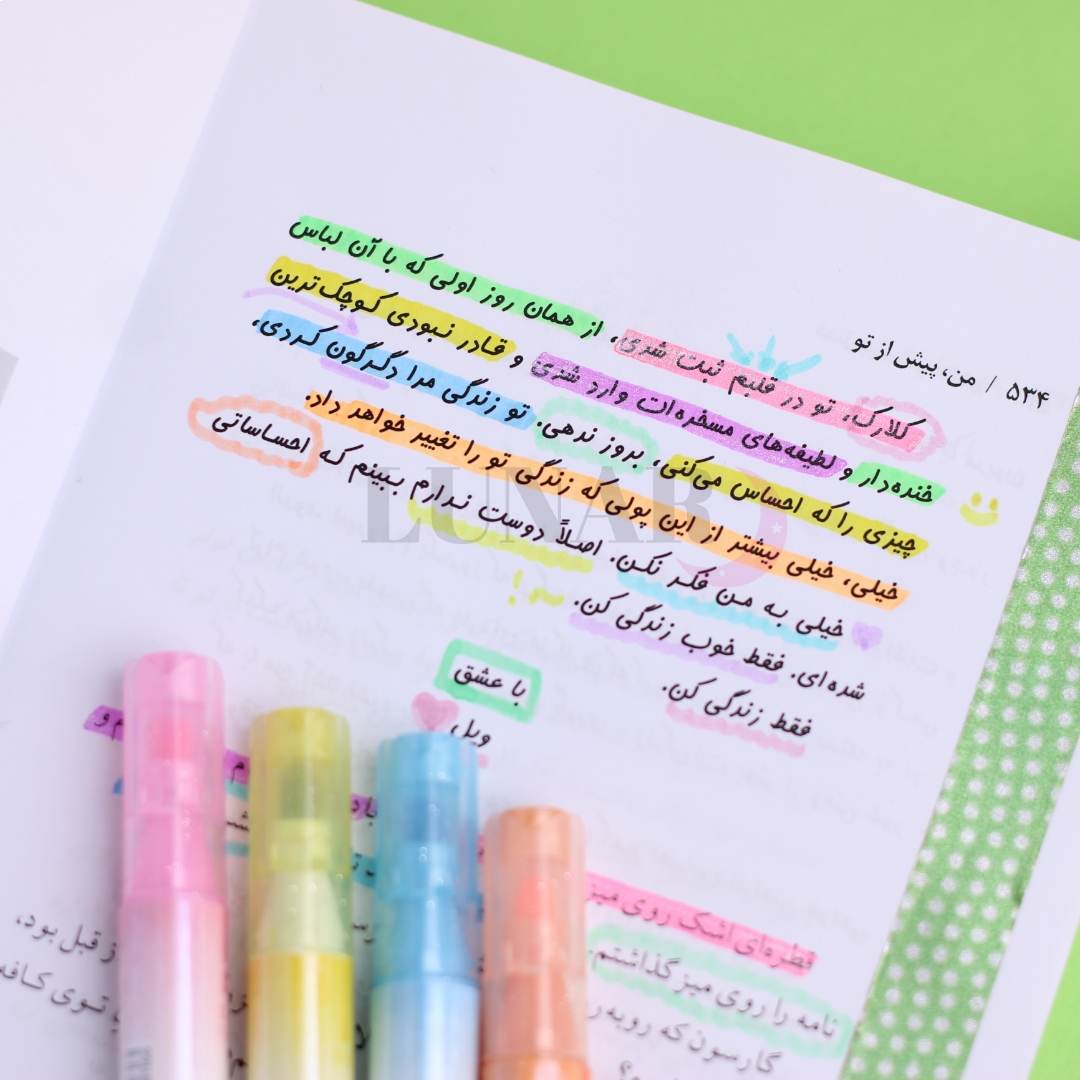 ۵۳۴ / من، پیش از تو
کلارک، تو در قلبم ثبت شدی، از همان روز اولی که با آن لباس
خنده‌دار و لطیفه‌های مسخره‌ات وارد شدی و قادر نبودی کوچک‌ترین
چیزی را که احساس می‌کنی، بروز ندهی. تو زندگی مرا دگرگون کردی،
خیلی، خیلی بیشتر از این پولی که زندگی تو را تغییر خواهد داد.
خیلی به من فکر نکن. اصلاً دوست ندارم ببینم که احساساتی
شده‌ای. فقط خوب زندگی کن.
فقط زندگی کن.
با عشق
ویل
LUNAR
قطره‌ای اشک روی میز
نامه را روی میز گذاشتم.
ز قبل بود،
گارسون که روبه‌ر
توی کافه